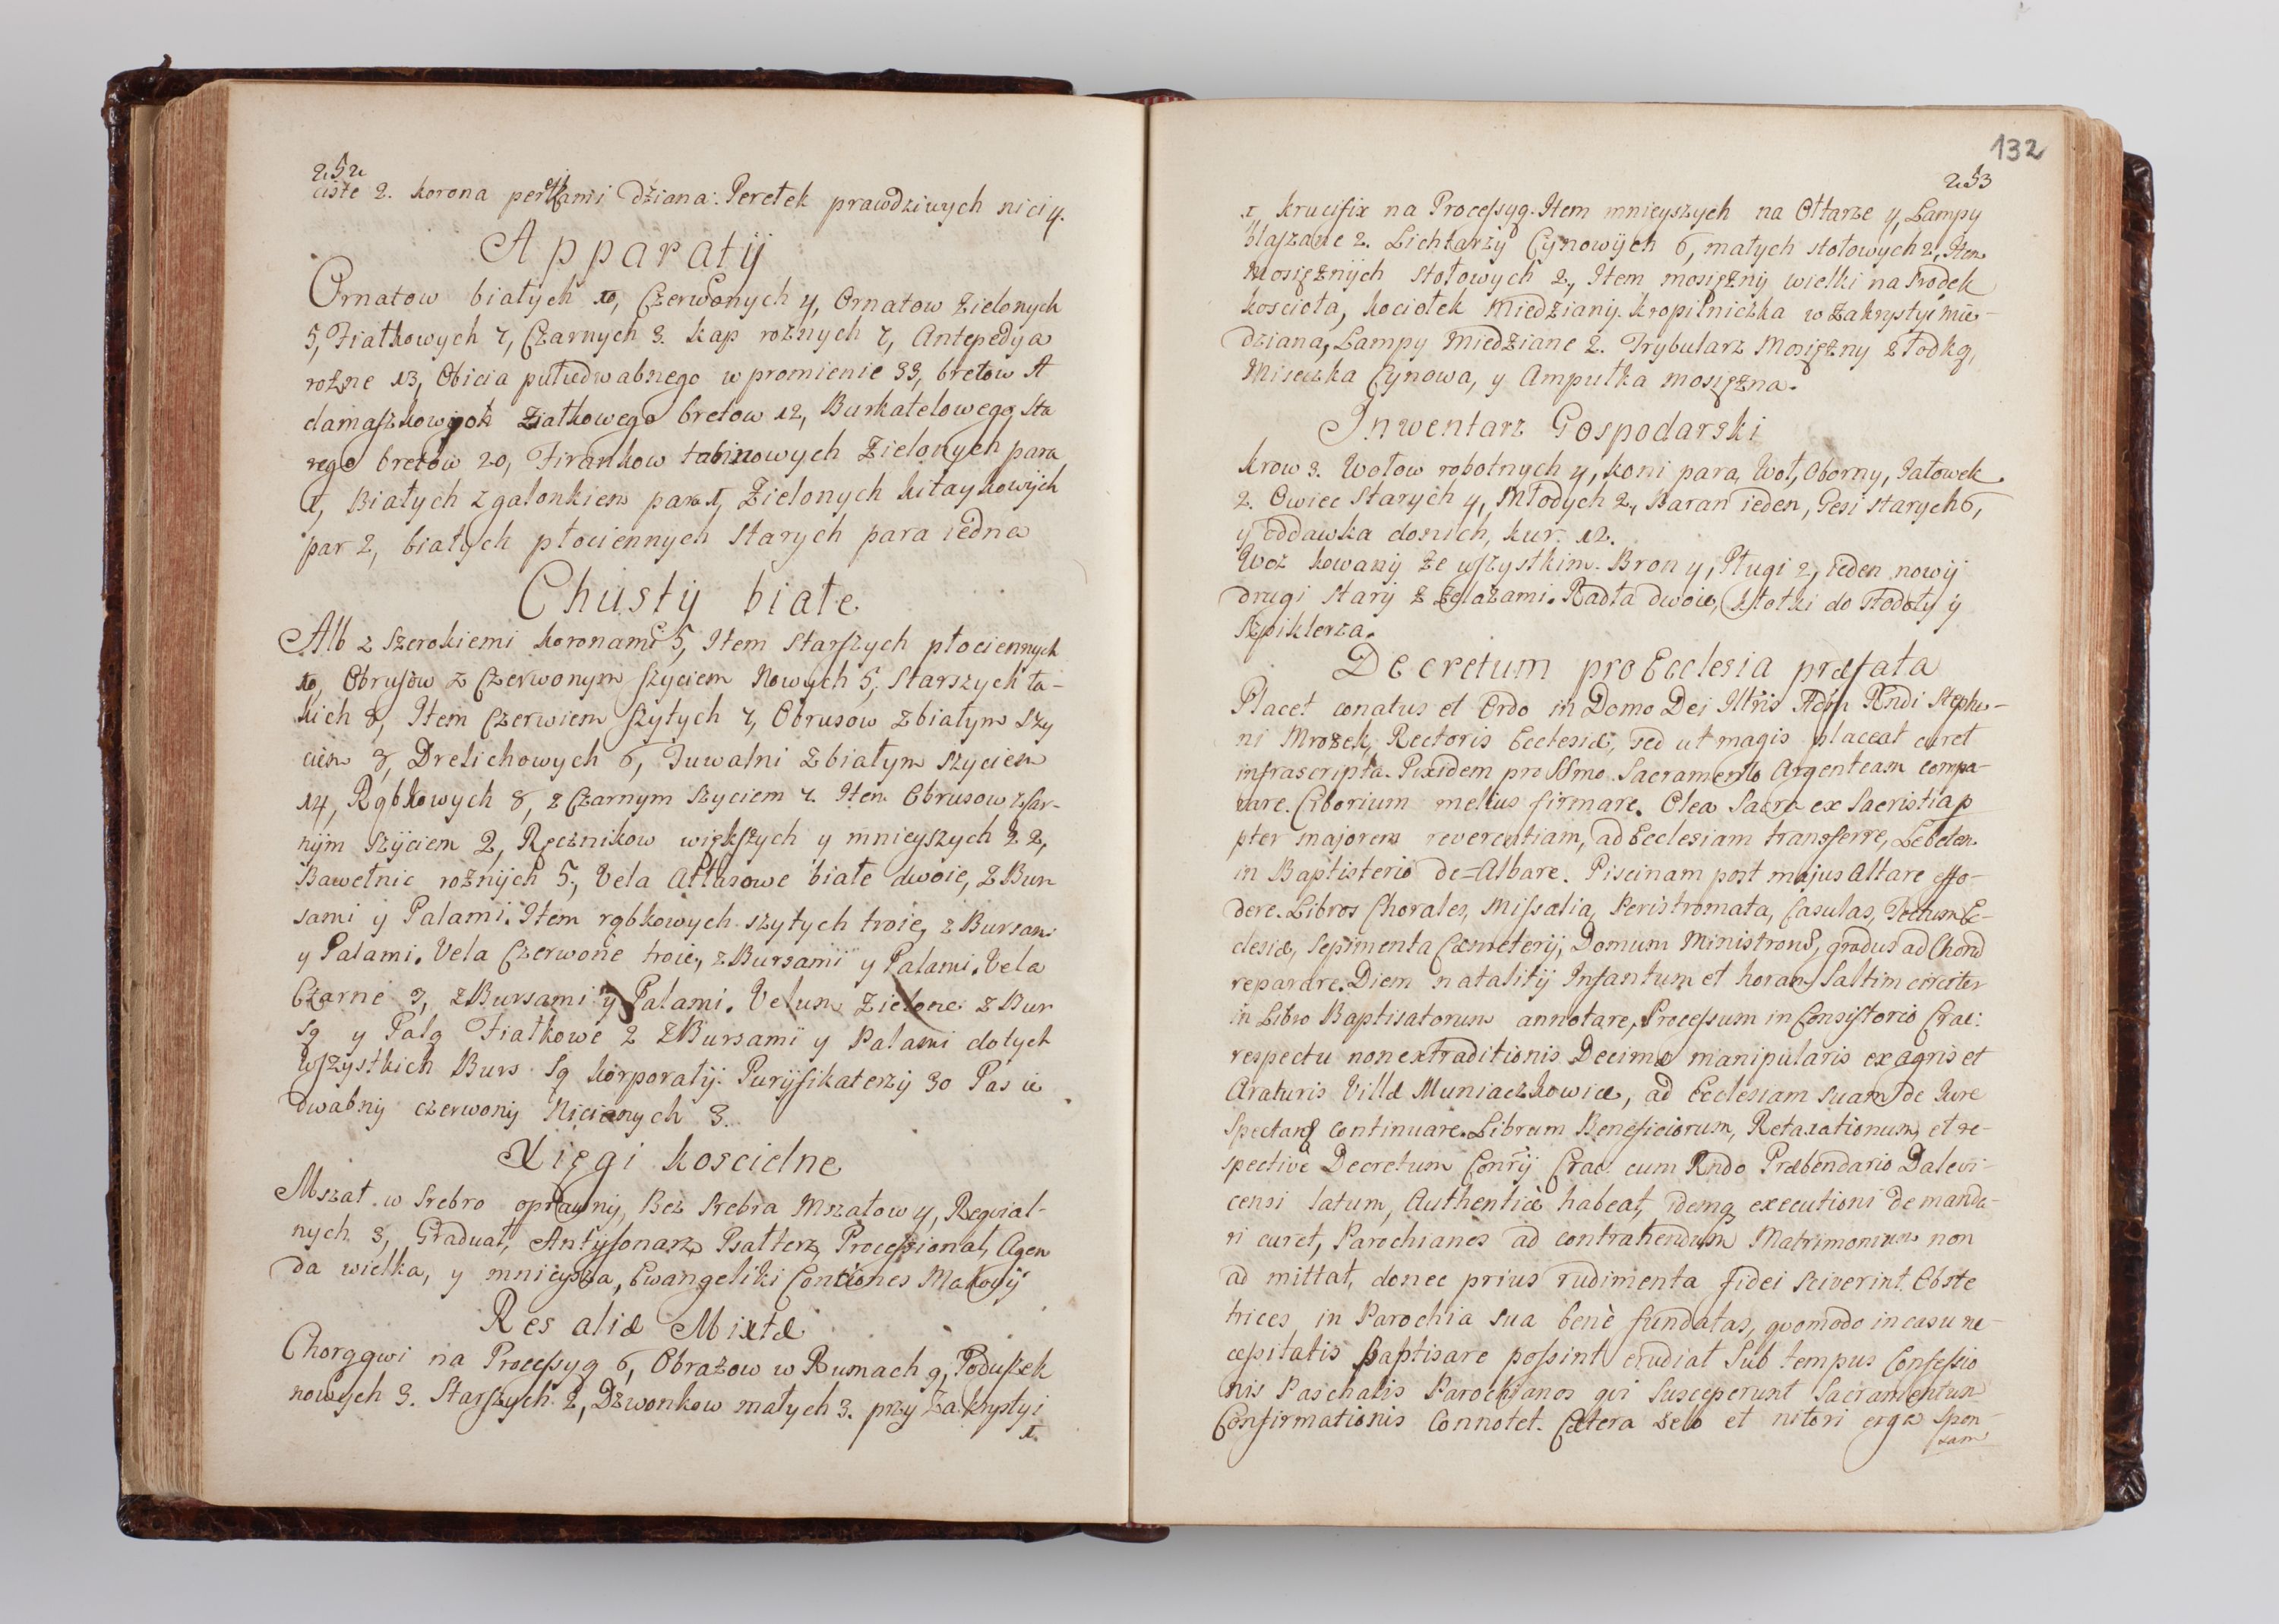 252
ciste 2. korona perełkami dziana. Perełek prawdziwych nici 4.
Apparatÿ
Ornatow białych 10, Czerwonych 4, Ornatow Zielonych
5, Fiałkowych 7, Czarnych 3. kap roznych 7, Antepedya
rozne 13, Obicia pułiedwabnego w promienie 33, bretow
damaszkowych Fiałkowego bretow 12, Burkatelowego, Sta
rego bretow 20, Firankow tabinowych Zielonych para
1, Białych z galonkiem para 1, Zielonych kitaykowÿch
par 2, białych płociennych starych para iedna
Chustÿ białe
Alb z szerokiemi koronami 5, Item Starszych płociennych
10, Obrusow z Czerwonym szyciem Nowych 5, Starszych ta-
kich 8, Item Czerwiem szytych 7, Obrusow z białym szy
ciem 8, Drelichowych 6, Tuwalni z białym szyciem
14, Rąbkowych 8, z Czarnym szyciem 7. Item Obrusow z Czar-
nÿm szÿciem 2, Ręcznikow większych y mnieyszych 22,
Bawełnic roznÿch 5, Vela Atłasowe białe dwoie, Z Bur
sami y Palami. Item rąbkowych szytych troie, z Bursami
y Palami. Vela Czerwone troie, z Bursami y Palami. Vela
Czarne 3, z Bursami y Palami. Velum Zielone z Bur
są y Palą Fiałkowe 2 Z Bursami y Palami do tych
wszystkich Burs Są korporatÿ. Purÿfikaterzÿ 30 Pas ie
dwabnÿ czerwonÿ Nicianych 3.
Xięgi koscielne
Mszał w srebro oprawnÿ, Bez srebra Mszałow 4, Reqvial-
nych 3, Graduał, Antÿfonarz, Psałterz, Processionał, Agen
da wielka, y mnieysza, Ewangeliki Conciones Makowÿ
Res aliæ Mixtæ
Chorągwi na Processyą 6, Obrazow w Rumach 9, Poduszek
nowych 3. Starszych 2, Dzwonkow małych 3. przy Zakrystyi
1.
132
253
1, krucifix na Processyą. Item mnieyszych na Ołtarze 4, Lampy
blaszane 2. Lichtarzÿ Cynowÿch 6, małych stołowych 2, Item
Mosięznÿch stołowych 2, Item mosięznÿ wielki na srodek
koscioła, kociołek Miedzianÿ. kropilniczka w Zakrystyi mie-
dziana, Lampy Miedziane 2. Trybularz Mosięzny z łodką,
Miseczka Cynowa, y Ampułka mosięzna.
Inwentarz Gospodarski
krow 3. Wołow robotnych 4, koni para, Woł, Oborny, Jałowek
2. Owiec Starych 4, Młodych 2, Baran ieden, Gesi starych 6,
y oddawka do nich, kur. 12.
Woz kowanÿ ze wszystkim. Bron 4, Pługi 2, ieden nowÿ
drugi starÿ z zelazami. Radła dwoie, kłotki do stodoły y
Szpiklerza.
Decretum pro Ecclesia præfata
Placet conatus et Ordo in Domo Dei Illris Adm Rndi Stepha-
ni Mrozek, Rectoris Ecclesiæ, sed ut magis placeat curet
infrascripta. Pixidem pro SSmo Sacramento Argenteam compa-
rare. Ciborium melius firmare. Olea Sacra ex Sacristia p
pter majorem reverentiam, ad Ecclesiam transferre, Lebetem
in Baptisterio de=Albare. Piscinam post majus Altare effo-
dere. Libros Chorales, Missalia, Peristromata, Casulas, Tectum Ec-
clesiæ, Sepimenta Cæmeterij, Domum Ministrorum, gradus ad Chorum
reparare. Diem natalitij Infantum et horam Saltim circiter
in Libro Baptisatorum annotare, Processum in Consistorio Crac:
respectu non extraditionis Decimæ manipularis ex agris et
Araturis Villæ Muniaczkowice, ad Ecclesiam suam de Jure
Spectans continuare. Librum Beneficiorum, Retaxationum, et re-
spective Decretum Conrij Crac: cum Rndo Præbendario Dalevi-
censi latum, Authenticè habeat, idemq executioni demanda-
ri curet, Parochianos ad contrahendum Matrimonium non
ad mittat, donec prius rudimenta fidei sciverint. Obste
trices in Parochia sua benè fundatas, quomodo in casu ne-
cessitatis Baptisare possint erudiat Sub tempus Confessio
nis Paschalis Parochianos qui Susceperunt Sacramentum
Confirmationis Connotet. Cætera zelo et nitori erga Spon-
sam